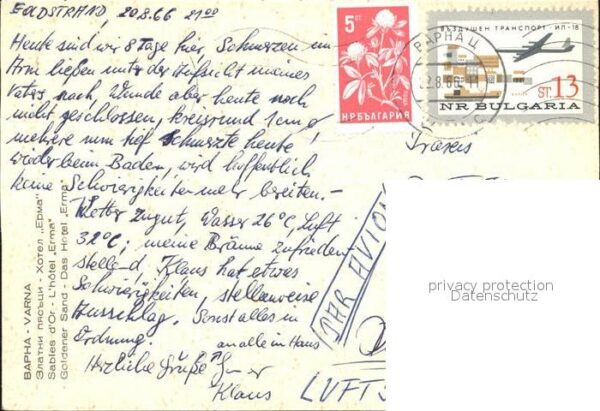 GOLDSTRAND, 20.8.66 21⁰⁰
Heute sind wir 8 Tage hier, Schmerzen im
Arm ließen unter der Aufsicht meines
Vaters nach, Wunde aber heute noch
nicht geschlossen, kreisrund 1 cm ⌀
mehrere mm tief schmerzte heute
wieder beim Baden, wird hoffentlich
keine Schwierigkeiten mehr bereiten. –
Wetter zu gut, Wasser 26°C, Luft
32°C; meine Bräune zufrieden
stellend, Klaus hat etwas
Schwierigkeiten, stellenweise
Ausschlag. Sonst alles in
Ordnung.
an alle im Haus
Herzliche Grüße
Klaus
ВАРНА - VARNA
Златни пясъци - Хотел „Ерма“
Sables d'Or - L'hôtel „Erma“
Goldener Sand - Das Hotel „Erma“
5 СТ
НР БЪЛГАРИЯ
ВЪЗДУШЕН ТРАНСПОРТ ИЛ-18
ST. 13
NR BULGARIA
ВАРНА Ц
2.8.66
PAR AVION
LUFT
privacy protection
Datenschutz